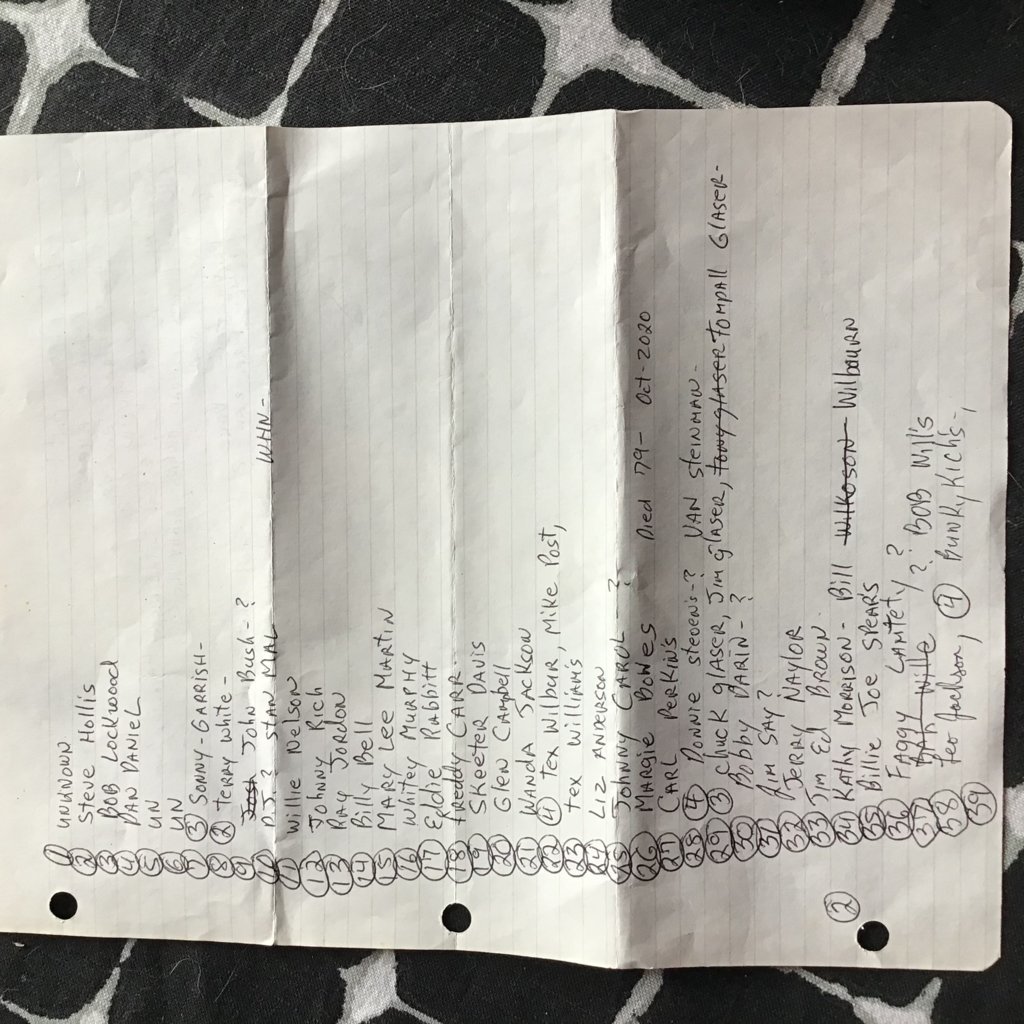 ① UNKNOWN
② Steve Hollis
③ BOB Lockwood
④ DAN DANIEL
⑤ UN
⑥ UN
⑦ ③ SONNY - GARRISH -
⑧ ② TERRY White -
⑨ John Bush - ?
⑩ D.J. ? STAN MAL WHN -
⑪ Willie Nelson
⑫ JOHNNY Rich
⑬ RAY JORDON
⑭ Billy Bell
⑮ MARY Lee MARTIN
⑯ Whitey MURPHY
⑰ Eddie Rabbitt
⑱ Freddy CARR.
⑲ SKeeteR DAVIS
⑳ Glen Campbell
㉑ WANDA JACKSON
㉒ ④ tex Wilbur, Mike Post,
㉓ tex William's
㉔ LIZ ANDERSON
㉕ JOHNNY CAROL ?
㉖ MARGIE BOWES Died 79 - Oct - 2020
㉗ CARL PERKIN'S
㉘ ④ DONNIE steven's - ? VAN STEINMAN -
㉙ ③ Chuck glaser, Jim glaser, tony glaser tompall GLASER -
㉚ Bobby DARIN - ?
㉛ Jim SAY ?
㉜ JERRY NAYLOR
㉝ Jim Ed BROWN
㉞ Kathy MORRISON - Bill Wilkoson Wilbourn
㉟ Billie Joe SPEARS
㊱ FAggy LAMtety ?
㊲ Wille ? BOB Will's
㊳ Jackson, ④ BUNKY Kich's -,
㊴
②